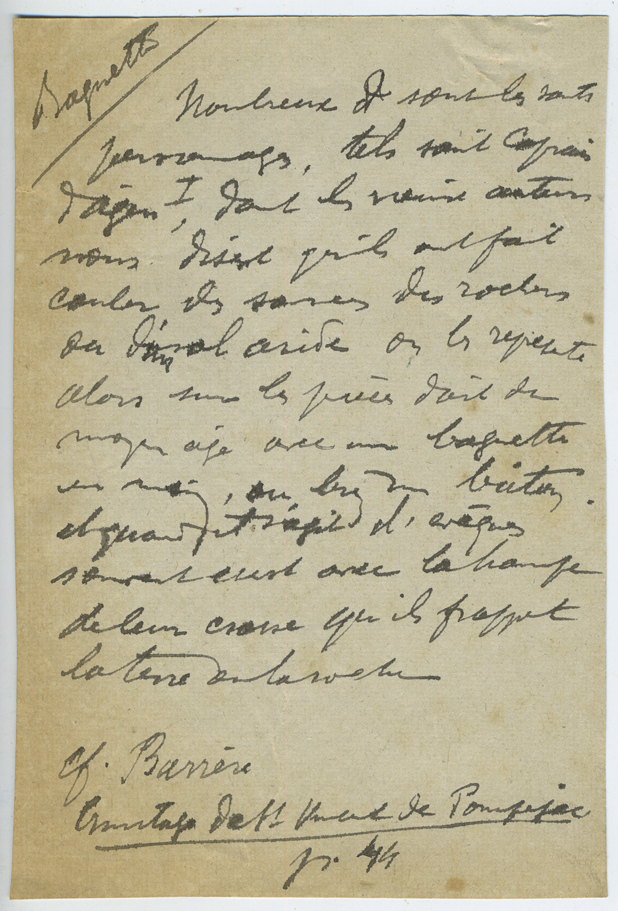 Baguette
Nombreux sont les saints
personnages, tels saint Caprais
d'Agen I, dont les vieux auteurs
nous disent qu'ils ont fait
couler des sources des rochers
ou d'un sol aride on les represente
alors sur les pièces d'art du
moyen age avec une baguette
en main, ou bien un bâton.
et quand il s'agit d'evêques
souvent c'est avec la hampe
de leur crosse qu'ils frappent
la terre ou la roche
cf. Barrère
Ermitage de St Vincent de Pompejac
p. 44